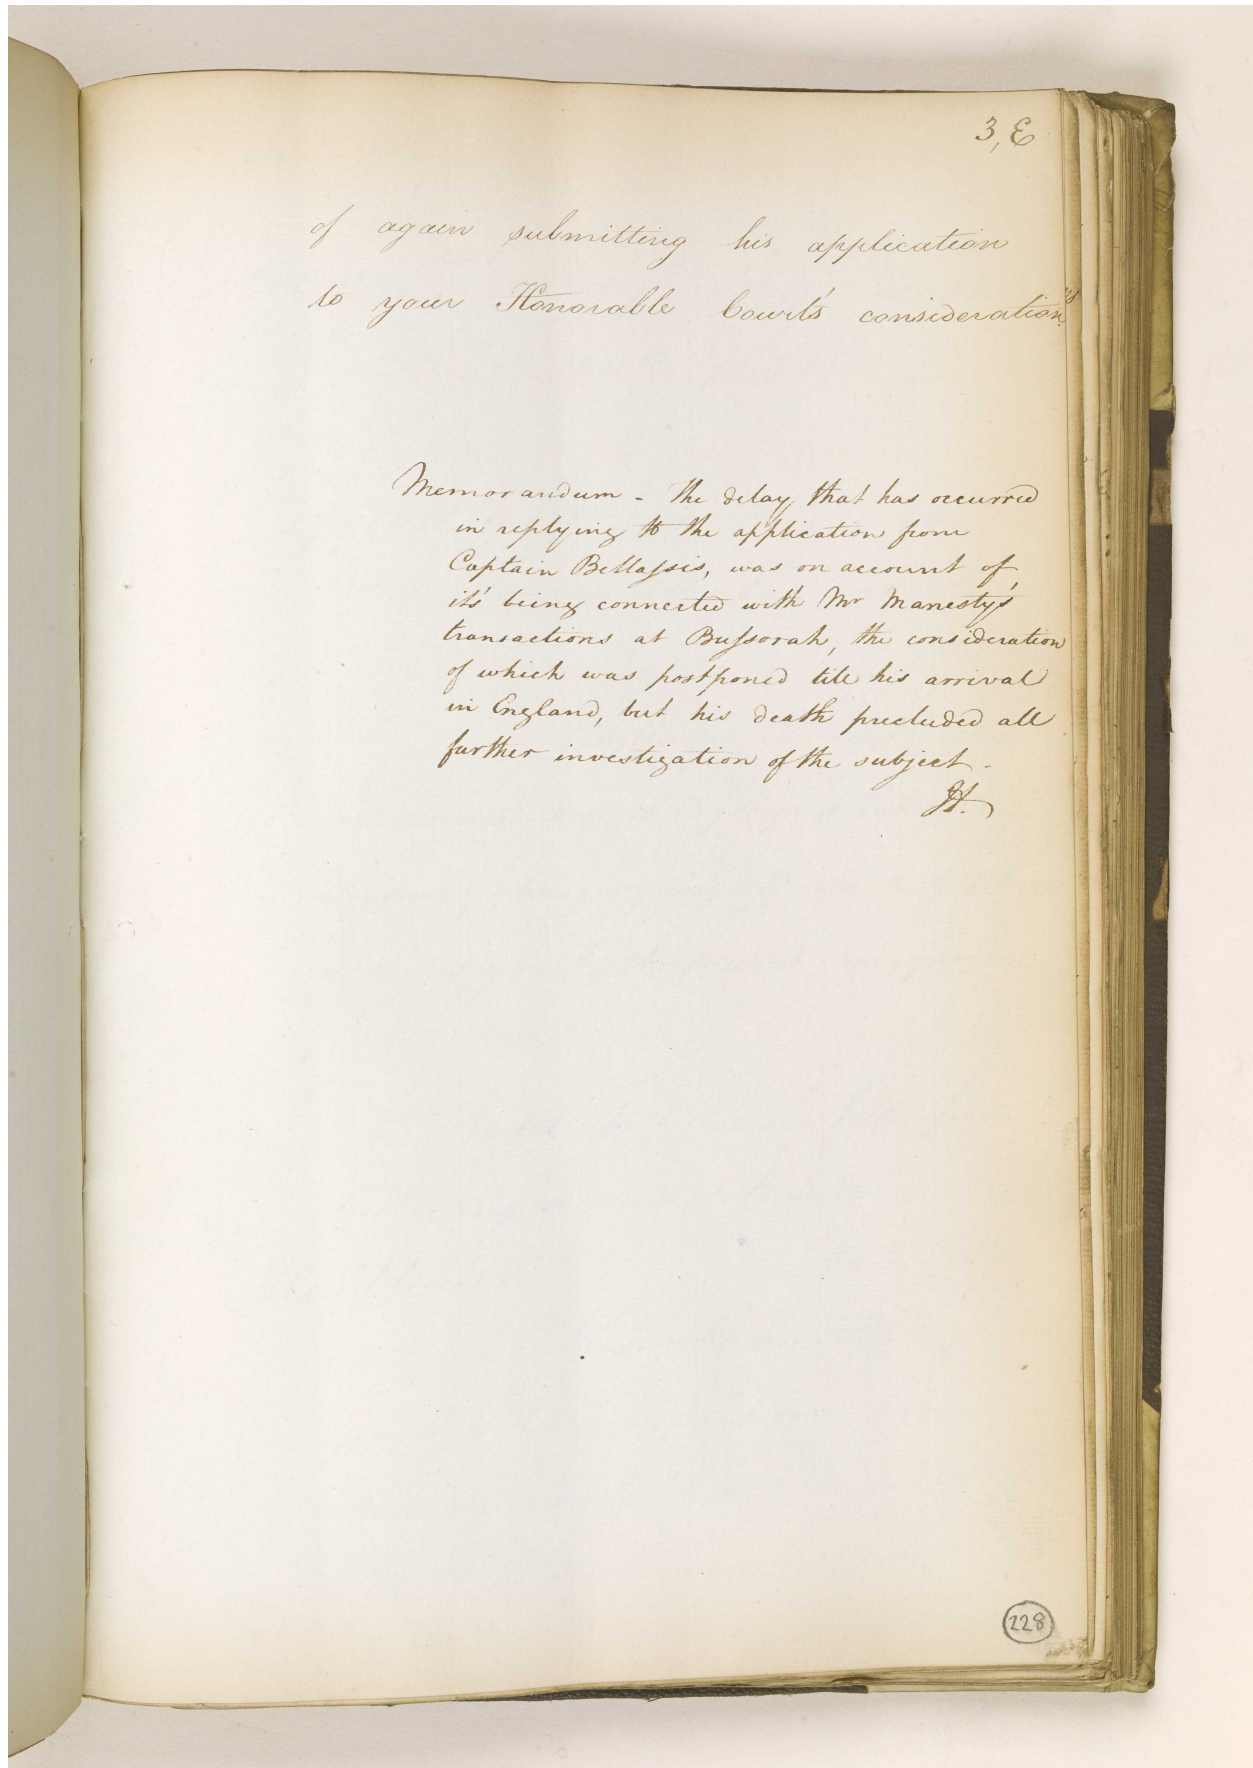 3, E
of again submitting his application
to your Honorable Court's consideration."
Memorandum - The delay that has occurred
in replying to the application from
Captain Bellassis, was on account of
it's being connected with Mr Manesty's
transactions at Bussorah, the consideration
of which was postponed till his arrival
in England, but his death precluded all
further investigation of the subject -
228